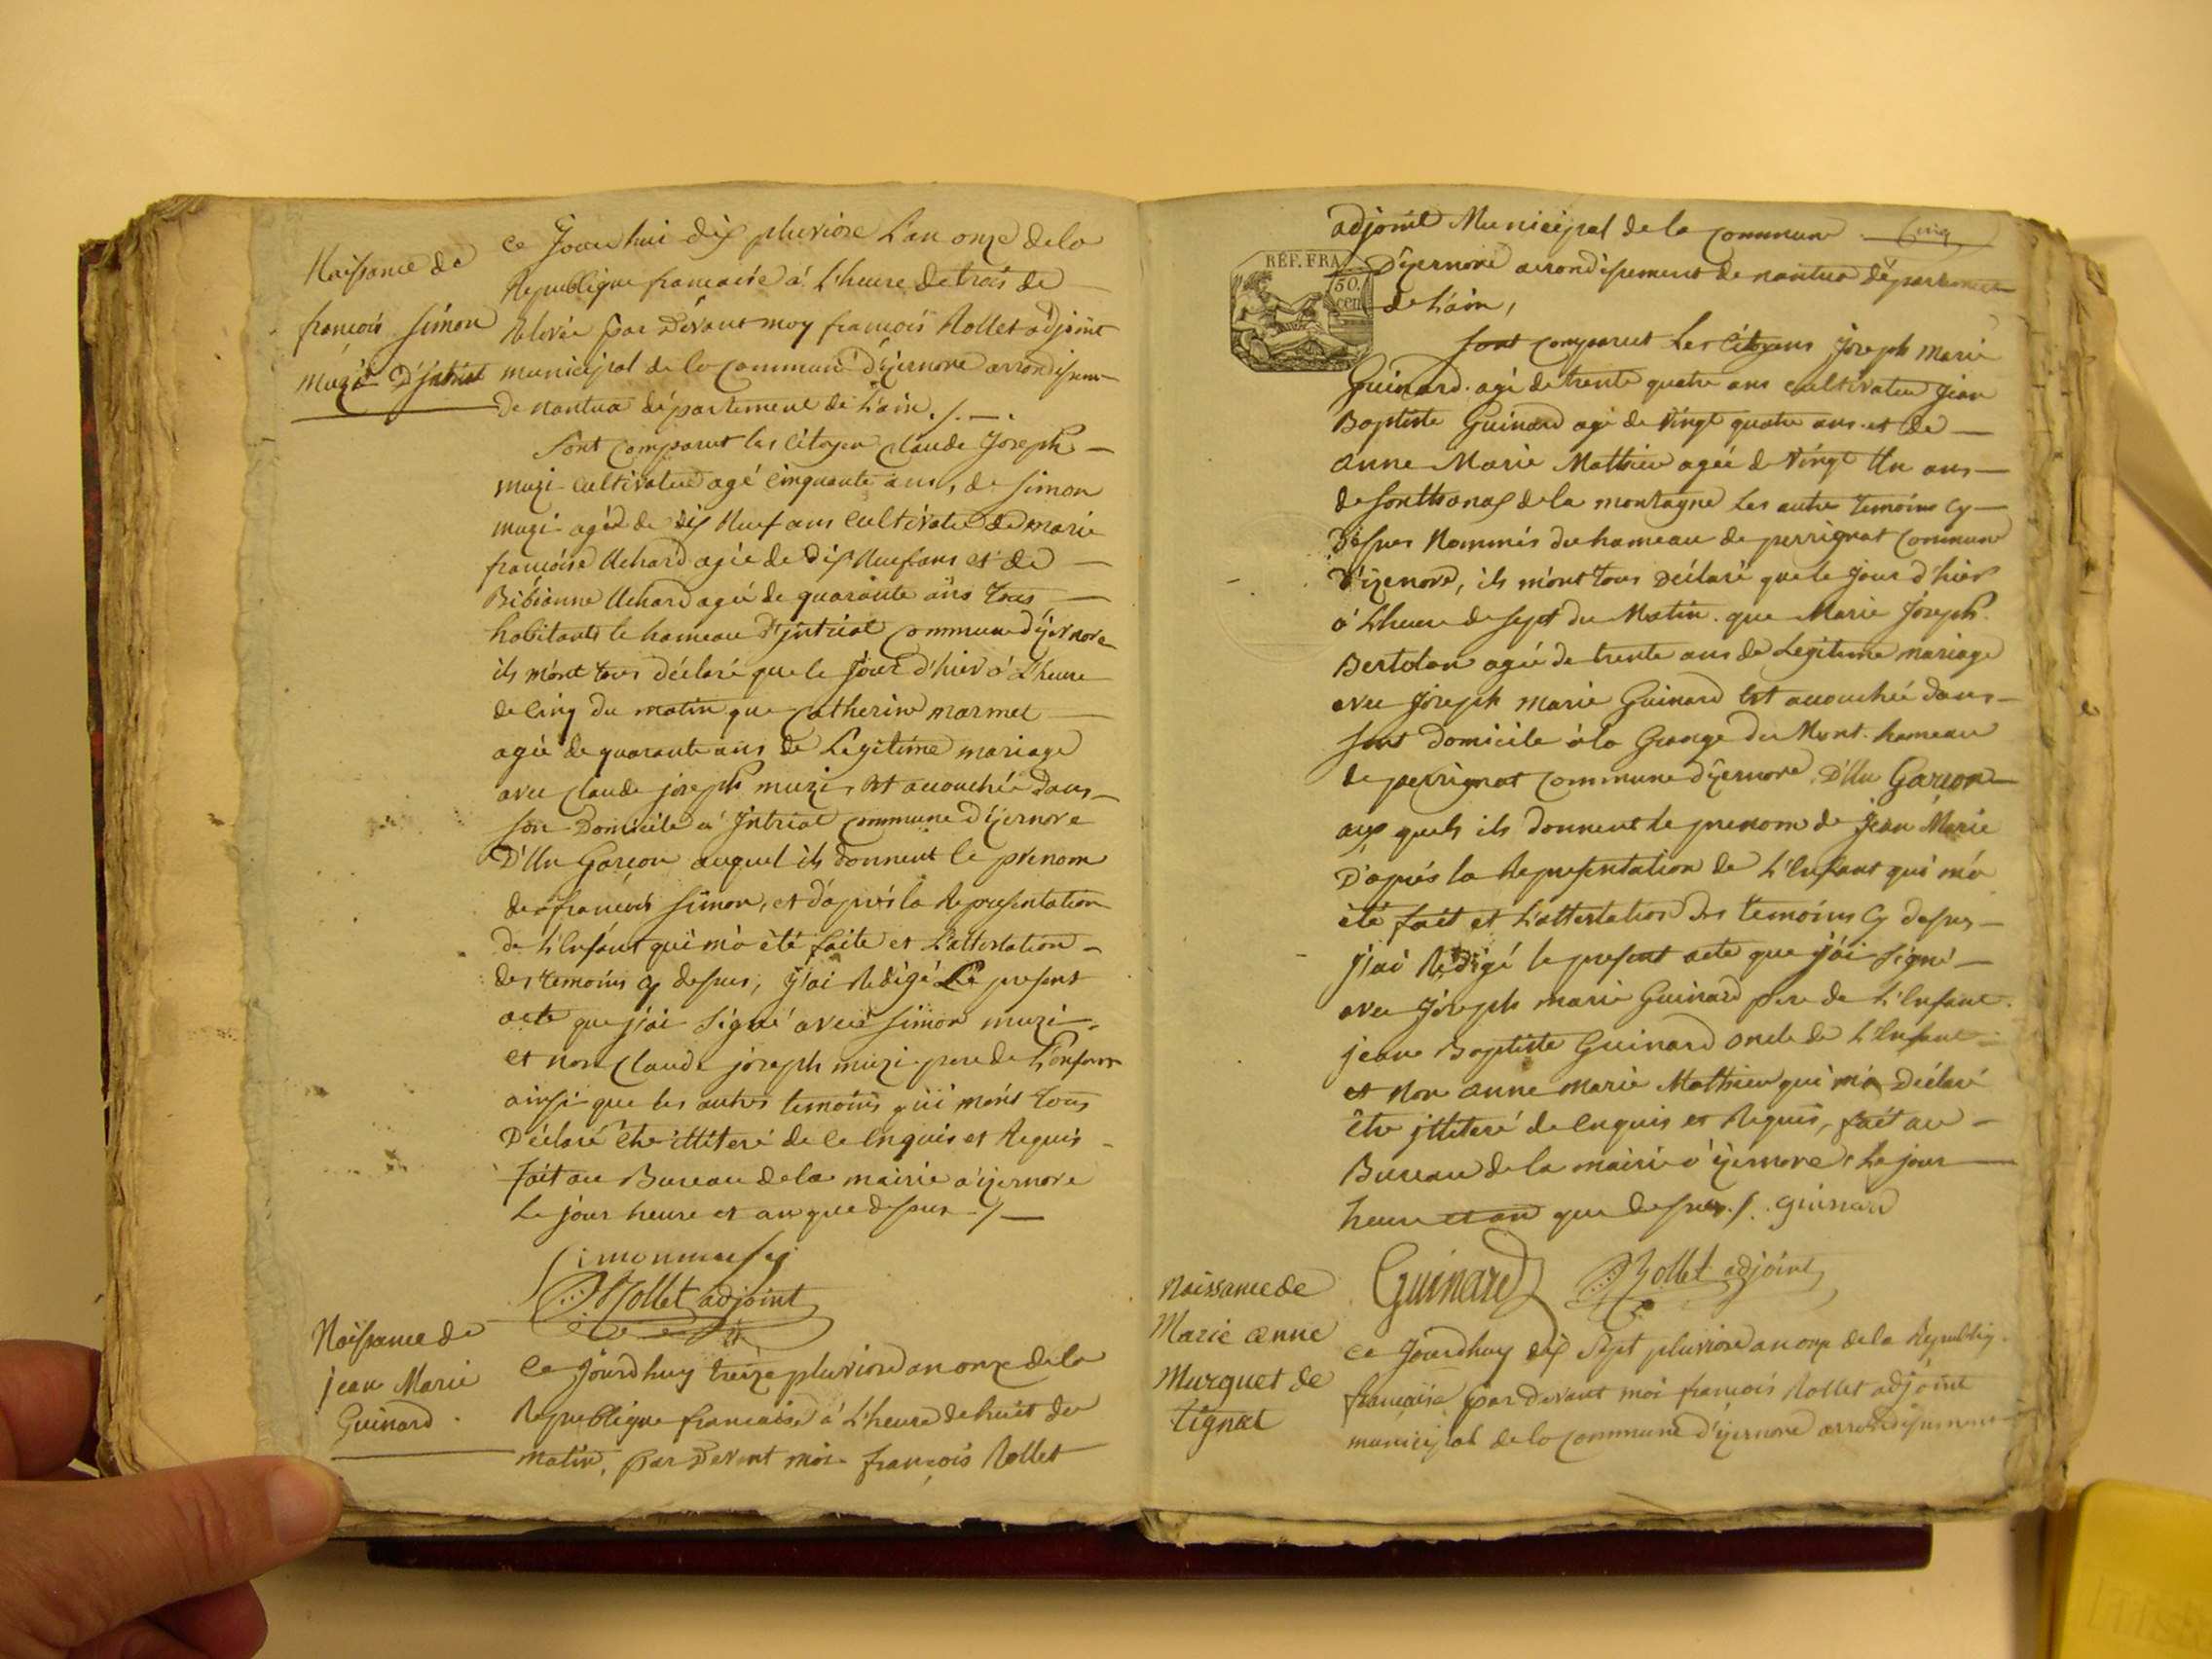 Naissance de
françois Simon
Muzi D'Intriat
Ce Jourdhui dix pluviose L'an onze de la
Republique francaise à L'heure de trois de
Relevée par Devant moy francois Rollet adjoint
municipal de la commune d'izernore arrondisem
De nantua département de L'ain ./.
Sont comparut les Citoyen Claude Joseph
muzi cultivateur agé cinquante ans, de Simon
muzi agéd de dix Neuf ans Cultivateur de marie
francoise Uchard agée de Dix Neuf ans et de
Bibianne Uchard agée de quarante ans tous
habitants le hameau D'intriat commune d'izernore
ils m'ont tous déclaré que le Jour d'hier à L'heure
de Cinq du matin que Catherine marmet
agée de quarante ans de Legitime mariage
avec Claude joseph muzi est acouchée dans
son Domicile à Intriat commune D'izernore
D'Un Garcon auquel ils donnent le prenom
de francois Simon, et d'après la Representation
de L'Enfant qui m'a été faite et L'attestation
des temoins cy desus, j'ai Redigé Le present
acte que j'ai Signé avec Simon muzi
et non Claude joseph muzi pere de L'enfant
ainsi que les autres temoins qui m'ont tous
Déclaré être illiteré de ce Enquis et Requis
fait au Bureau de la mairie a izernore
Le jour heure et an que desus ./.
Simon musy
Rollet adjoint
Naissance de
jean Marie
Guinard
Ce Jourdhuy treize pluviose an onze de la
Republique francaise à L'heure de huit du
matin, par Devant moi francois Rollet
adjoint Municipal de la Commune
Cinq
RÉP. FRA.
50.
cen
D'izernore arrondisement de nantua département
de L'ain,
Sont comparut Les Citoyens Joseph Marie
Guinard agé de trente quatre ans cultivateur Jean
Baptiste Guinard agé de Vingt quatre ans et de
anne Marie Mathieu agée de Vingt Un ans
de Sonthonax de la montagne Les autre temoins Cy
Desus Nommés du hameau de perrignat Commune
D'izernore, ils m'ont tous Déclaré que le Jour d'hier
à L'heure de Sept du Matin que Marie Joseph
Bertolon agée de trente ans de Legitime mariage
avec Joseph Marie Guinard Est acouchée dans
sont Domicile à la Grange du Mont hameau
de perrignat commune d'izernore D'Un Garcon
aux quels ils donnent le prenom de Jean Marie
D'après la Representation de L'Enfant qui m'a
été fait et L'attestation des temoins Cy desus
j'ai Redigé le present acte que j'ai Signé
avec Joseph marie Guinard pere de L'Enfant
jean Baptiste Guinard oncle de L'Enfant
et Non anne marie Mathieu qui m'a Déclaré
être illiteré de Enquis et Requis, fait au
Bureau de la mairie à izernore, Le jour
heure et an que desus ./. Guinard
Guinard
Rollet adjoint
Naissance de
Marie anne
Murguet de
tignat
Ce Jourdhuy dix Sept pluviose an onze de la Republiq
francaise par devant moi francois Rollet adjoint
municipal de la commune d'izernore arrondisement